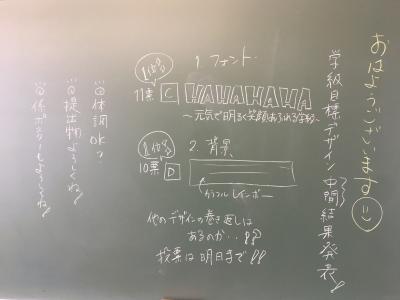 おはようございます
学級目標デザイン中間結果発表!
1. フォント
1位
11票 C HAHAHAHA
～元気で明るく笑顔あふれる学校～
2. 背景
1位
10票 D
カラフルレインボー
他のデザインの巻き返しは
あるのか・・!?
投票は明日まで!!
体調OK?
提出物よろしくね!
係ポスターもよろしくね!